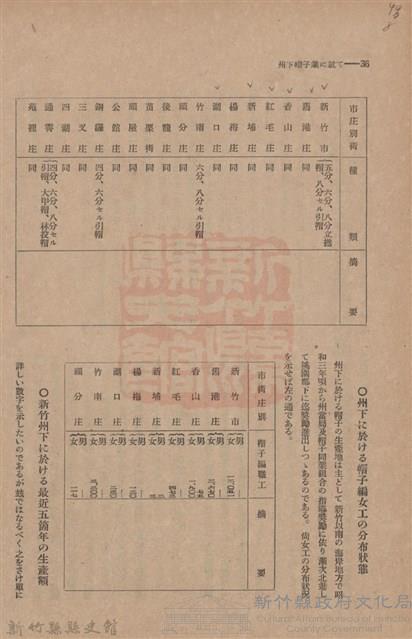 36──て就に業子帽下州
市庄別街 種類 摘要
新竹市 五分、六分、八分立撚帽、八分セル引帽
舊港庄 同
香山庄 同
紅毛庄 同
新埔庄 同
楊梅庄 同
湖口庄 同
竹南庄 六分、八分セル引帽
頭分庄 同
後龍庄 同
苗栗街 同
頭屋庄 同
公館庄 同
銅鑼庄 四分、六分セル引帽
三叉庄 同
四湖庄 同
通霄庄 四分、六分、八分セル引帽、大甲帽、林投帽
苑裡庄 同
◯州下に於ける帽子編女工の分布狀態
州下に於ける帽子の生産地は主として新竹以南の海岸地方で昭
和三年頃から州當局及帽子同業組合の指導奬勵に依り漸次北進し
て桃園郡下に迄奬勵進出しつゝあるのである。尙女工の分布狀況
を示せば左の通である。
市街庄別 帽子編職工 摘要
新竹市 男 女
舊港庄 男 女
香山庄 男 女
紅毛庄 男 女
新埔庄 男 女
楊梅庄 男 女
湖口庄 男 女
竹南庄 男 女
頭分庄 男 女
◯新竹州下に於ける最近五箇年の生産額
詳しい數字を示したいのであるが玆ではなるべく之をさけ單に
新竹縣縣史館
新竹縣政府文化局
Cultural Affairs Bureau of Hsinchu County Government